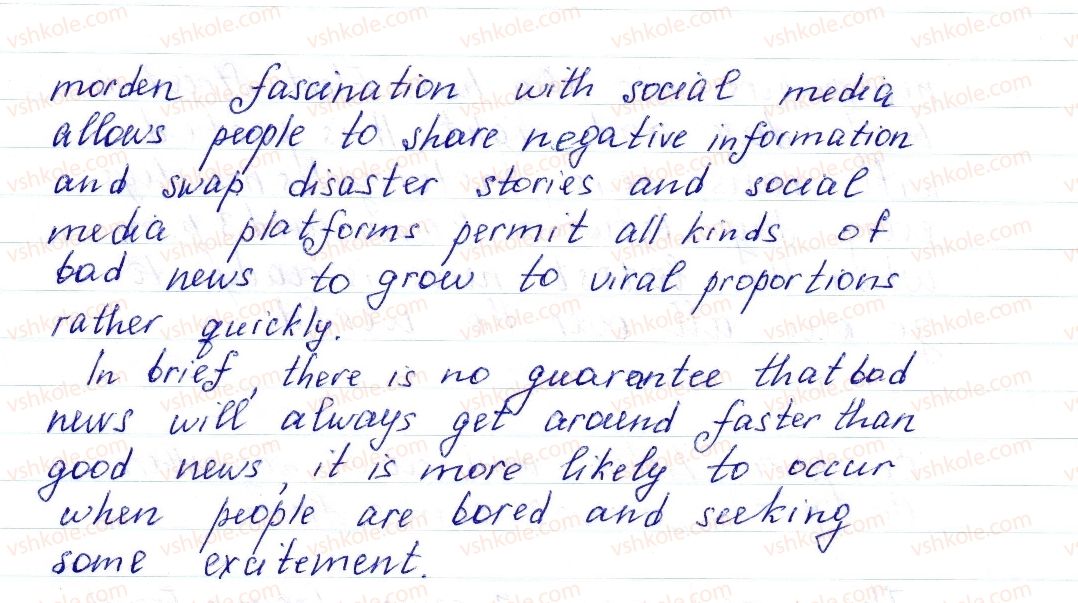 morden fascination with social media
allows people to share negative information
and swap disaster stories and social
media platforms permit all kinds of
bad news to grow to viral proportions
rather quickly.
In brief, there is no guarantee that bad
news will always get around faster than
good news, it is more likely to occur
when people are bored and seeking
some excitement.